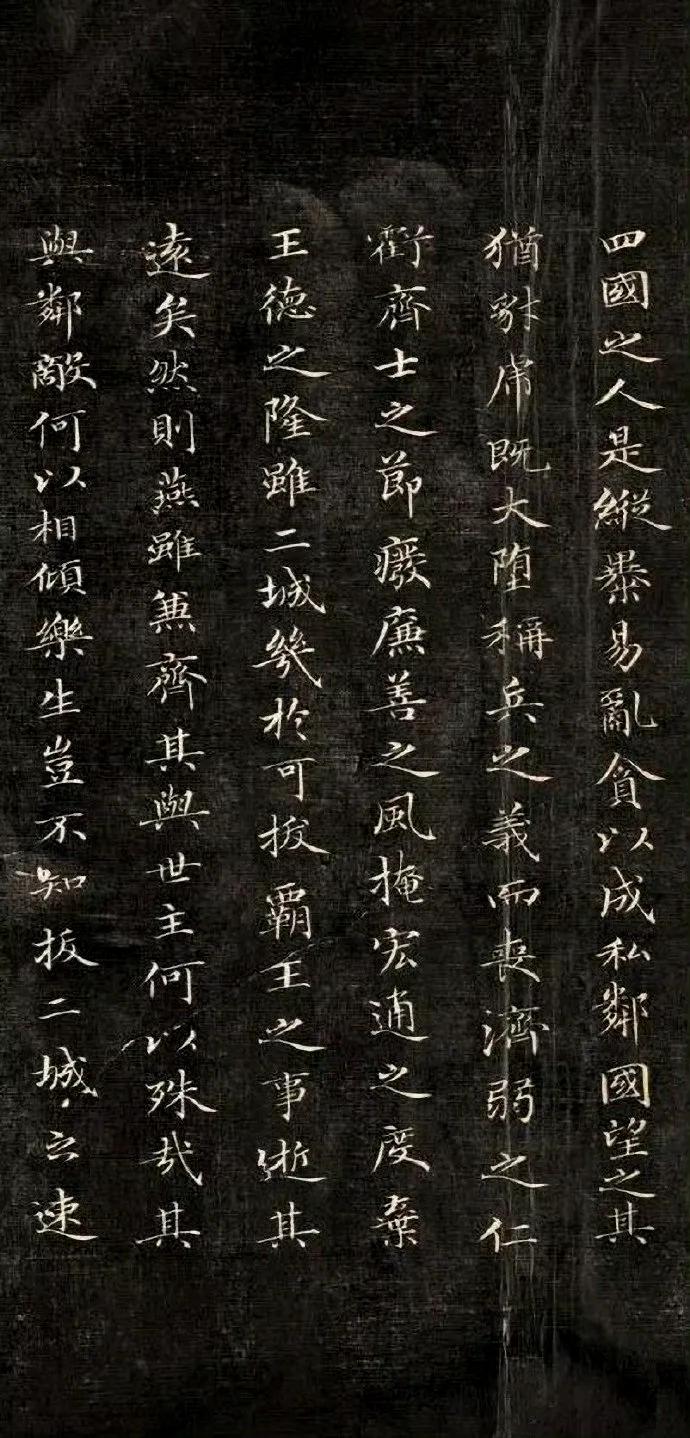 四國之人是縱暴易亂貪以成私鄰國望之其
猶豺虎既大墮稱兵之義而喪濟弱之仁
虧齊士之節廢廉善之風掩宏通之度棄
王德之隆雖二城幾於可拔霸王之事逝其
遠矣然則燕雖兼齊其與世主何以殊哉其
與鄰敵何以相傾樂生豈不知拔二城之速